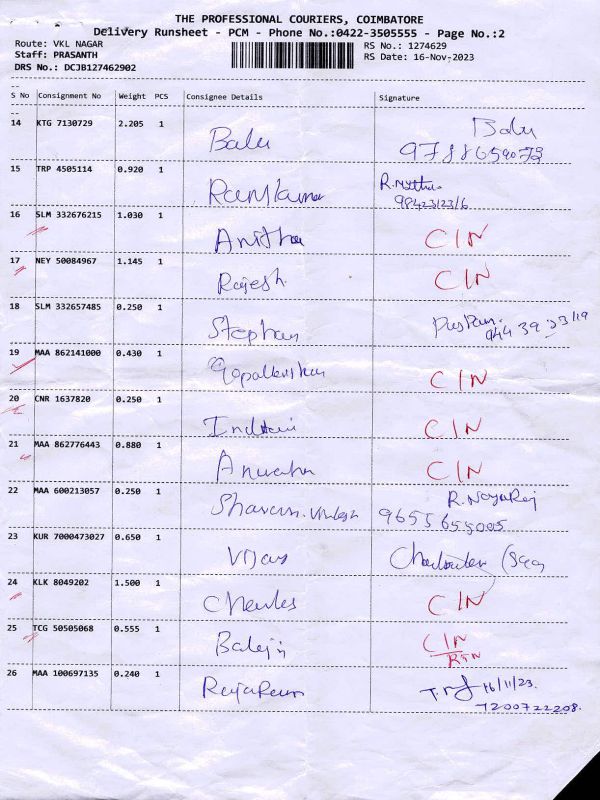 THE PROFESSIONAL COURIERS, COIMBATORE
Delivery Runsheet - PCM - Phone No.:0422-3505555 - Page No.:2
Route: VKL NAGAR RS No.: 1274629
Staff: PRASANTH RS Date: 16-Nov-2023
DRS No.: DCJB127462902
S No Consignment No Weight PCS Consignee Details Signature
14 KTG 7130729 2.205 1 Balu Balu
15 TRP 4505114 0.920 1
16 SLM 332676215 1.030 1 Anitha CIN
17 NEY 50084967 1.145 1 Rajesh CIN
18 SLM 332657485 0.250 1 Stephan
19 MAA 862141000 0.430 1 CIN
20 CNR 1637820 0.250 1 CIN
21 MAA 862776443 0.880 1 CIN
22 MAA 600213057 0.250 1
9655655005
23 KUR 7000473027 0.650 1 Vijay
24 KLK 8049202 1.500 1 Charles CIN
25 TCG 50505068 0.555 1 Balaji CIN
RTN
26 MAA 100697135 0.240 1 16/11/23.
7200722208.